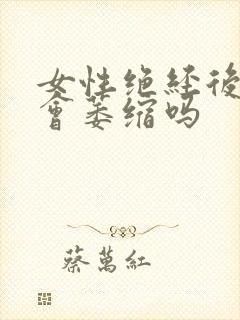 女性绝経後
會萎缩吗
蔡萬紅